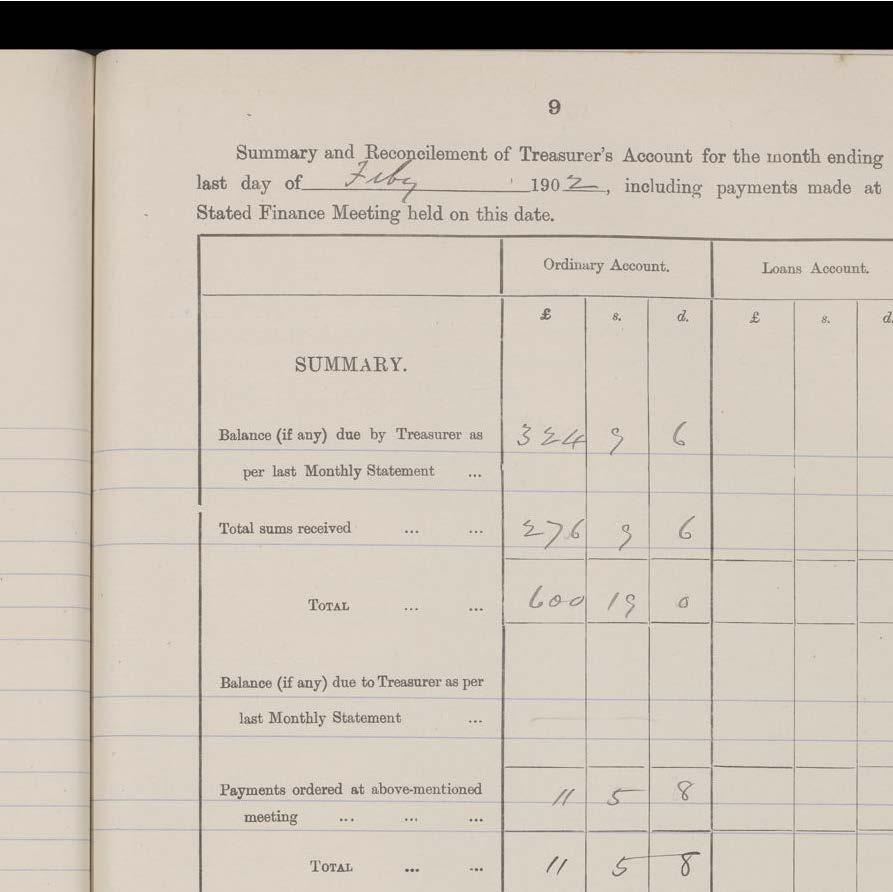 9
Summary and Reconcilement of Treasurer's Account for the month ending
last day of Feby 1902, including payments made at
Stated Finance Meeting held on this date.
Ordinary Account. Loans Account.
£ s. d. £ s. d.
SUMMARY.
Balance (if any) due by Treasurer as 324 9 6
per last Monthly Statement ...
Total sums received ... ... 276 9 6
TOTAL ... ... 600 19 0
Balance (if any) due to Treasurer as per
last Monthly Statement ...
Payments ordered at above-mentioned 11 5 8
meeting ... ... ...
TOTAL ... ... 11 5 8